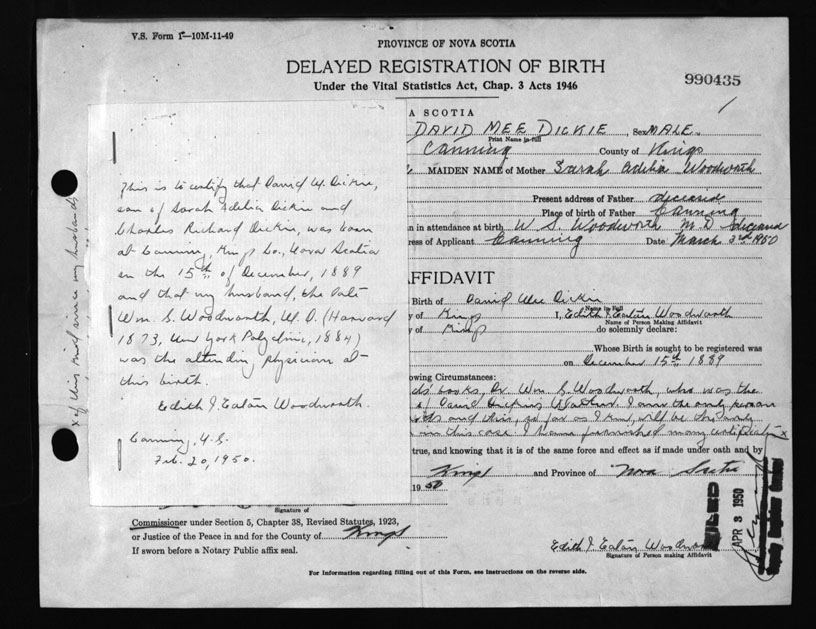 V.S. Form 1—10M-11-49
PROVINCE OF NOVA SCOTIA
DELAYED REGISTRATION OF BIRTH
Under the Vital Statistics Act, Chap. 3 Acts 1946
990435
A SCOTIA
DAVID MEE DICKIE, Sex MALE.
Print Name in Full
Canning County of Kings
MAIDEN NAME of Mother Sarah Adelia Woodworth
Present address of Father deceased
Place of birth of Father Canning
n in attendance at birth W. S. Woodworth M D
ress of Applicant Canning Date March 3rd 1950
This is to certify that David M. Dickie,
son of Sarah Adelia Dickie and
Charles Richard Dickie, was born
at Canning, Kings Co., Nova Scotia
on the 15th of December, 1889
and that my husband, the late
Wm. S. Woodworth, M.D. (Harvard
1873, New York Polyclinic, 1884)
was the attending physician at
this birth.
Edith J. Eaton Woodworth
Canning, N.S.
Feb. 20, 1950.
x of this kind since my husbands
FFIDAVIT
Birth of David Mee Dickie
Name in Full
y of Kings I, Edith J. Eaton Woodworth
Name of Person Making Affidavit
y of Kings do solemnly declare:
Whose Birth is sought to be registered was
on December 15th 1889
owing Circumstances:
ds' books, Dr. Wm. S. Woodworth, who was the
I am the only person
and this, so far as I know, will be
in this case. I have furnished many certificates x
true, and knowing that it is of the same force and effect as if made under oath and by
Kings and Province of Nova Scotia
19 50
Signature of
Commissioner under Section 5, Chapter 38, Revised Statutes, 1923,
or Justice of the Peace in and for the County of Kings
If sworn before a Notary Public affix seal.
Edith J. Eaton Woodworth
Signature of Person making Affidavit
FILED
APR 3 1950
Deputy Registrar General
For information regarding filling out of this Form, see instructions on the reverse side.